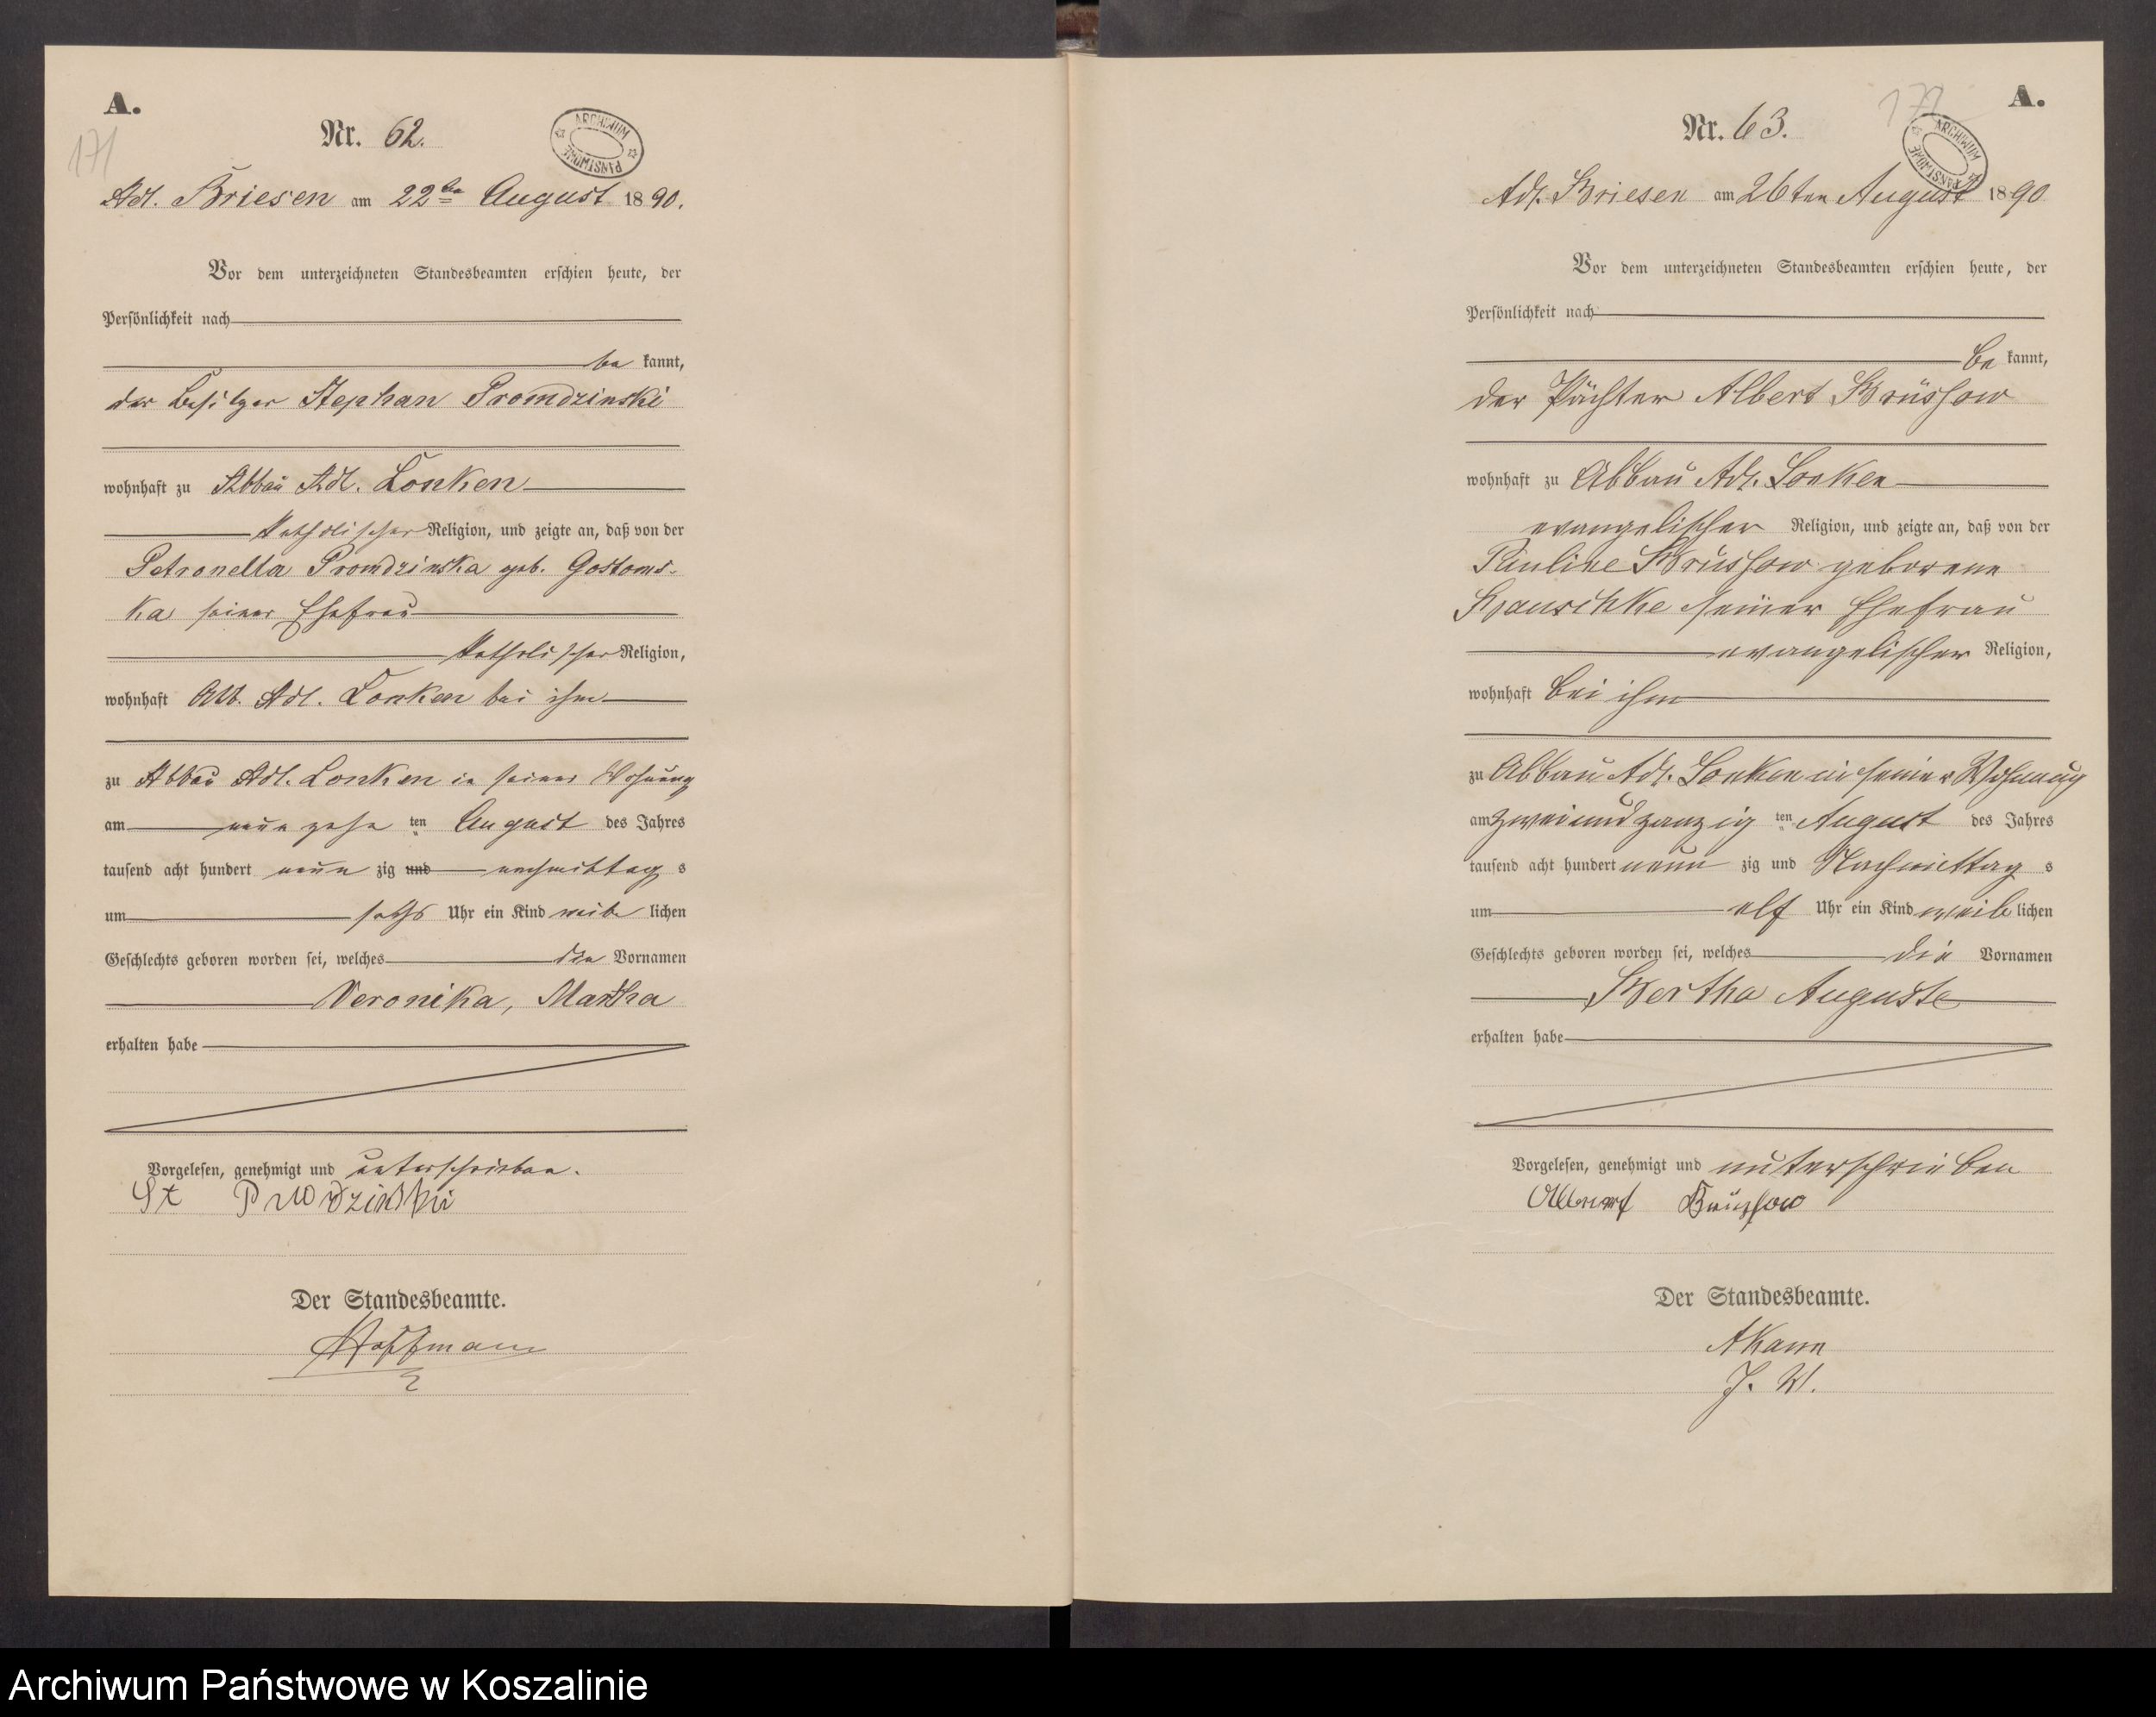 A.
171
Nr. 62.
ARCHIWUM PAŃSTWOWE
Adl. Briesen am 22ten August 1890.
Vor dem unterzeichneten Standesbeamten erschien heute, der
Persönlichkeit nach
be kannt,
der Besitzer Stephan Promdzinski
wohnhaft zu Abbau Adl. Lonken
katholischer Religion, und zeigte an, daß von der
Petronella Promdzinska geb. Gostoms-
ka seiner Ehefrau
katholischer Religion,
wohnhaft Abb. Adl. Lonken bei ihm
zu Abbau Adl. Lonken in seiner Wohnung
am neunzehn ten August des Jahres
tausend acht hundert neun zig und nachmittag s
um sechs Uhr ein Kind weib lichen
Geschlechts geboren worden sei, welches die Vornamen
Veronika, Martha
erhalten habe
Vorgelesen, genehmigt und unterschrieben.
St
Der Standesbeamte.
Hoffmann
A.
172
Nr. 63.
ARCHIWUM PAŃSTWOWE
Adl. Briesen am 26ten August 1890
Vor dem unterzeichneten Standesbeamten erschien heute, der
Persönlichkeit nach
be kannt,
der Pächter Albert Brüssow
wohnhaft zu Abbau Adl. Lonken
evangelischer Religion, und zeigte an, daß von der
Pauline Brüssow geborene
seiner Ehefrau
evangelischer Religion,
wohnhaft bei ihm
zu Abbau Adl. Lonken in seiner Wohnung
am zweiundzanzig ten August des Jahres
tausend acht hundert neun zig und Nachmittag s
um elf Uhr ein Kind weib lichen
Geschlechts geboren worden sei, welches die Vornamen
Bertha Auguste
erhalten habe
Vorgelesen, genehmigt und unterschrieben
Albert Brüssow
Der Standesbeamte.
AKann
J. V.
Archiwum Państwowe w Koszalinie